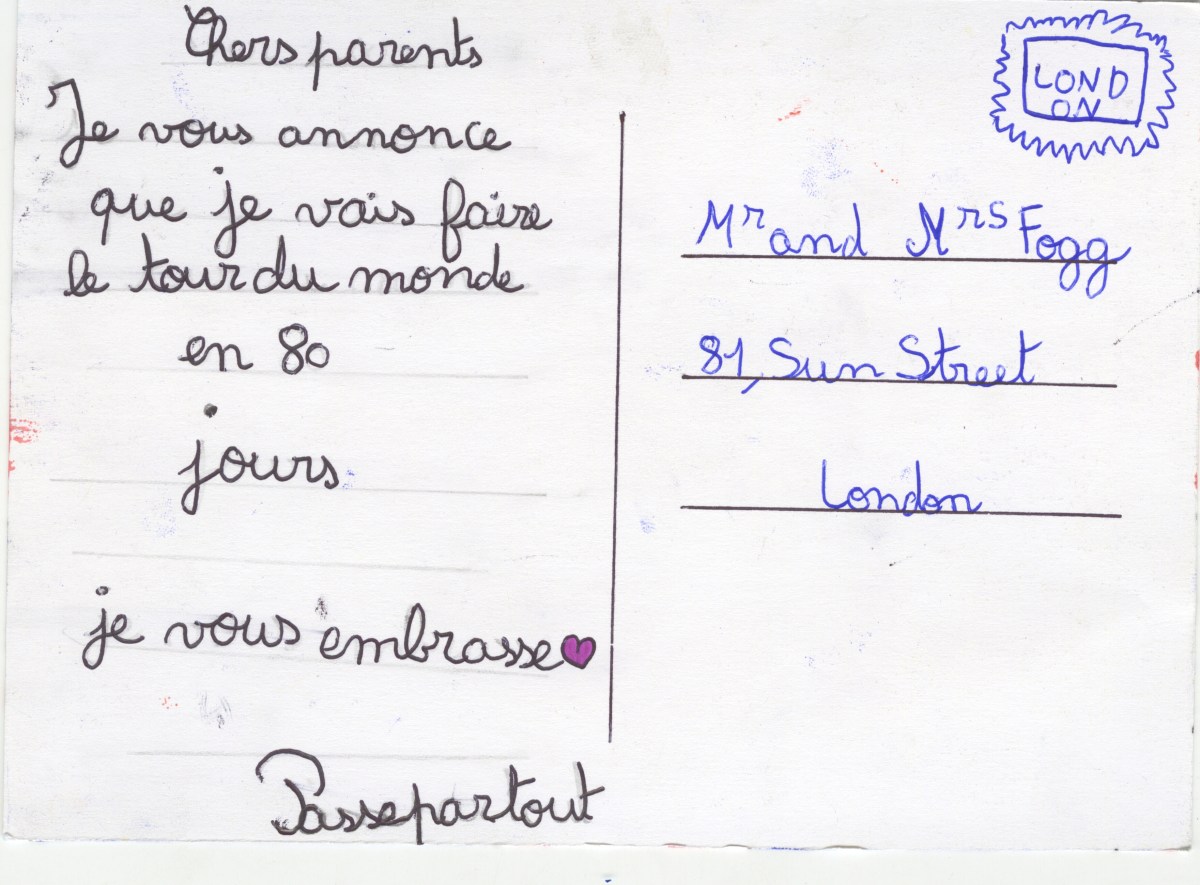 Chers parents
Je vous annonce
que je vais faire
le tour du monde
en 80
jours
je vous embrasse
Passepartout
LOND
ON
Mr and Mrs Fogg
81, Sun Street
London